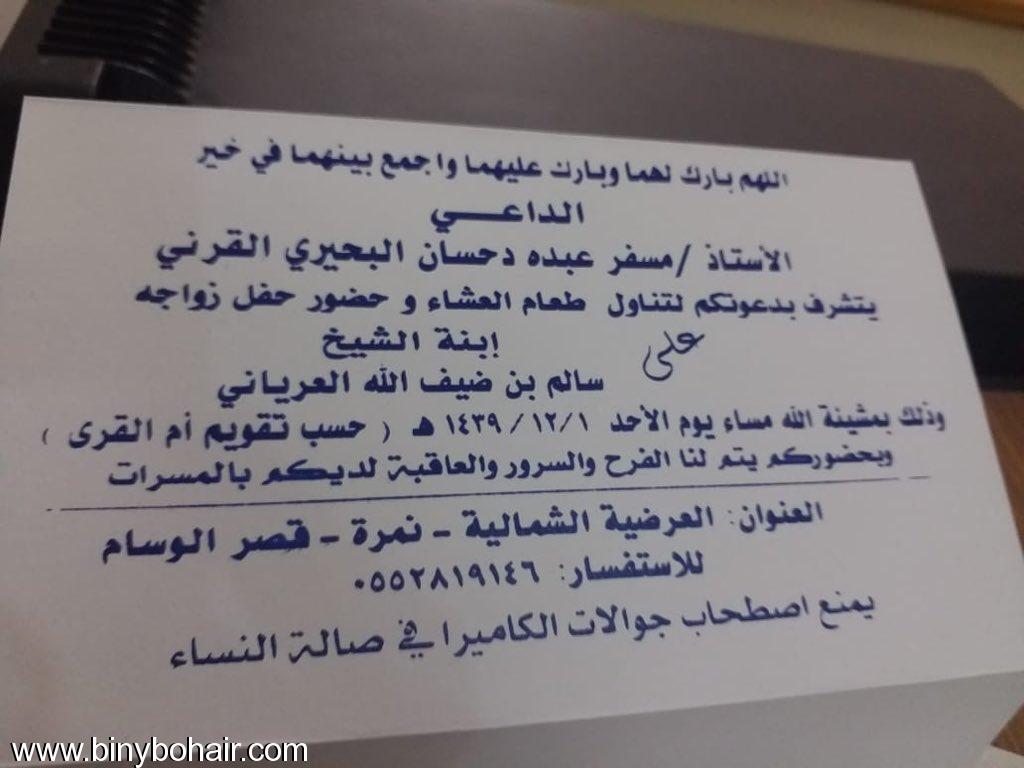 اللهم بارك لهما وبارك عليهما واجمع بينهما في خير
الداعـــي
الأستاذ /مسفر عبده دحسان البحيري القرني
يتشرف بدعوتكم لتناول طعام العشاء و حضور حفل زواجه
على
إبنة الشيخ
سالم بن ضيف الله العرياني
وذلك بمشيئة الله مساء يوم الأحد ١٤٣٩/١٢/١ هـ ( حسب تقويم أم القرى )
وبحضوركم يتم لنا الفرح والسرور والعاقبة لديكم بالمسرات
العنوان: العرضية الشمالية - نمرة - قصر الوسام
للاستفسار: ٠٥٥٢٨١٩١٤٦
يمنع اصطحاب جوالات الكاميرا في صالة النساء
www.binybohair.com